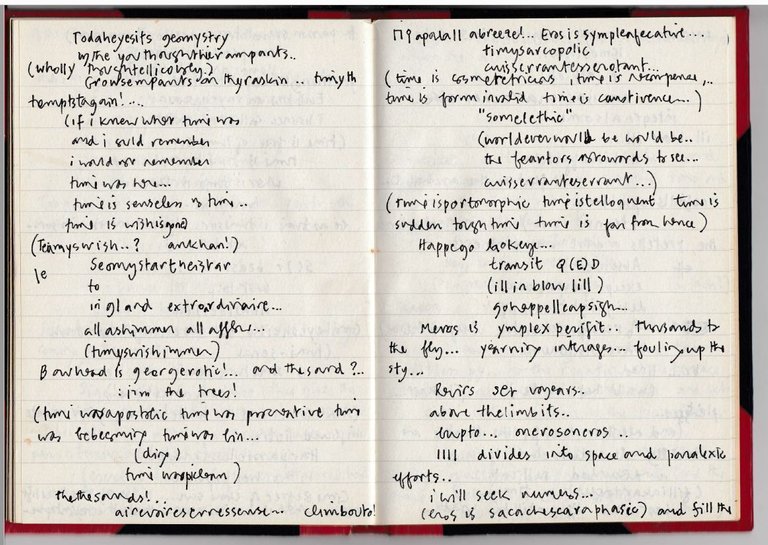 Todaheyesits geomystry
withe you thoughtheramparts..
(wholly thoughtellicobvly.)
Growsempants on thyraskin .. timyth
temptstagain!...
(if i knew what time was
and i culd remember
i would not remember
time was here...
time is senseless is time..
time is wishisand
(Teamyswish..? ankhan!)
Seomystartheistar
le
to
in gland extraordinaire...
all ashimmer all afflow...
(timyswishimmer)
Bowhead is georgerotic!... and the sand?..
i i'm the trees!
(time wasapostolic time was procreative time
was bebecoming time was bin...
(dixp)
time waspiclean)
thethesands!..
airevoireserressense... climbouto!
apatall abreege!.. Eros is sympleafecative...
timysarcopolic
cuisserrantesserotant...
(time is cosmetetricious , time is recompence,..
time is form invalid time is canstivence...)
"somelethic"
(worldeverwould be would be..
the feartors arrowards to see...
cuisserranteserrant...)
(time isportomorphic time istelloquent time is
sudden toughtime time is far from hence)
Happego lackeye...
transit Q(E)D
(ill in blow lill)
gohappellcapsigh...
Meros is ymplex perifit.. thousands to
the fly... yearning interages... fouling up the
sty...
Revirs set voyears..
above thelimbits..
bupto... onerosoneros..
1111 divides into space and paralexic
efforts..
i will seek numbus...
(eros is sacachescaraphasic) and fill the